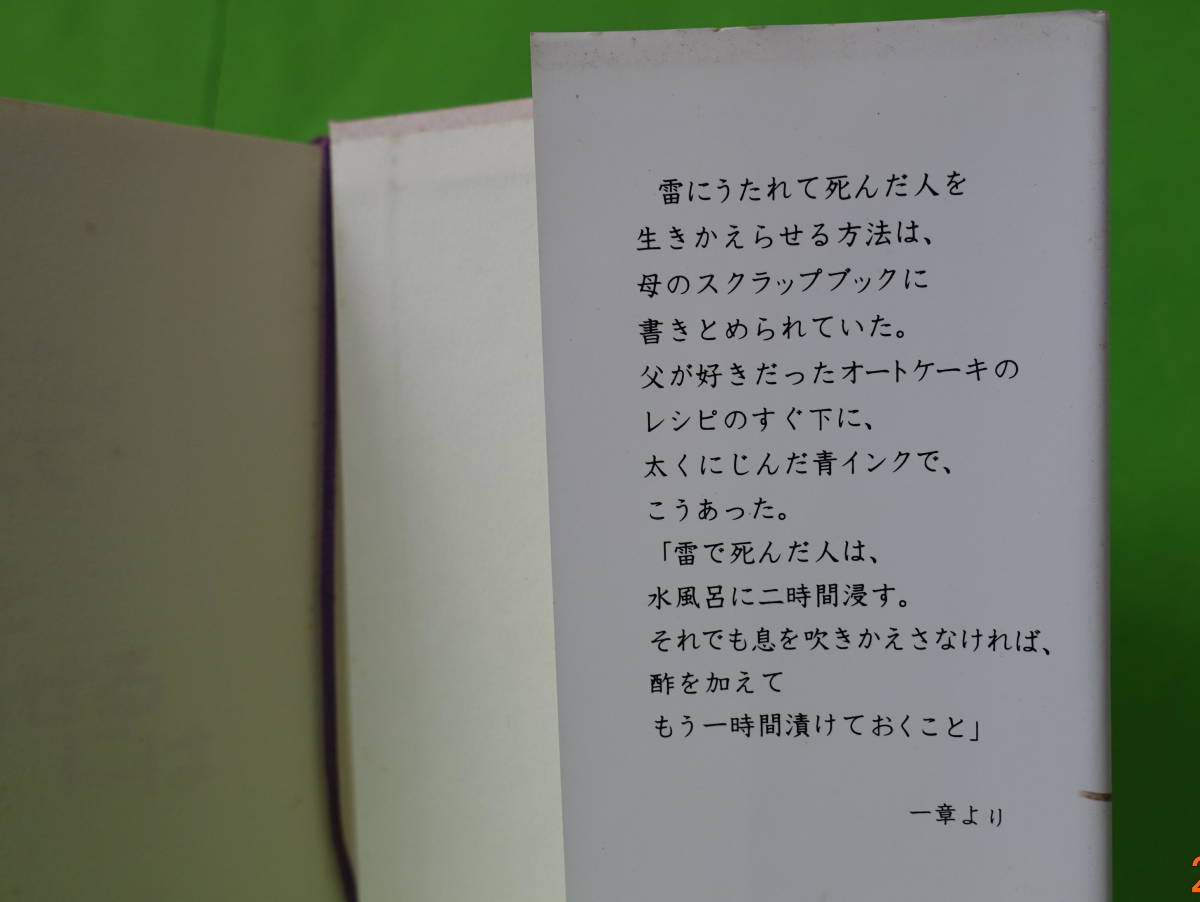 雷にうたれて死んだ人を
生きかえらせる方法は、
母のスクラップブックに
書きとめられていた。
父が好きだったオートケーキの
レシピのすぐ下に、
太くにじんだ青インクで、
こうあった。
「雷で死んだ人は、
水風呂に二時間浸す。
それでも息を吹きかえさなければ、
酢を加えて
もう一時間漬けておくこと」
一章より
2